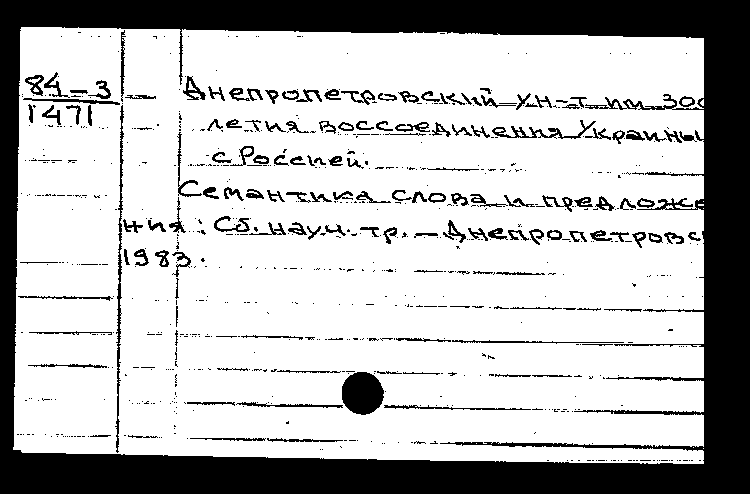 84-3
1471
Днепропетровский ун-т им. 300
летия воссоединения Украины
с Россией.
Семантика слова и предложе
ния: Сб. науч. тр. – Днепропетровс
1983.